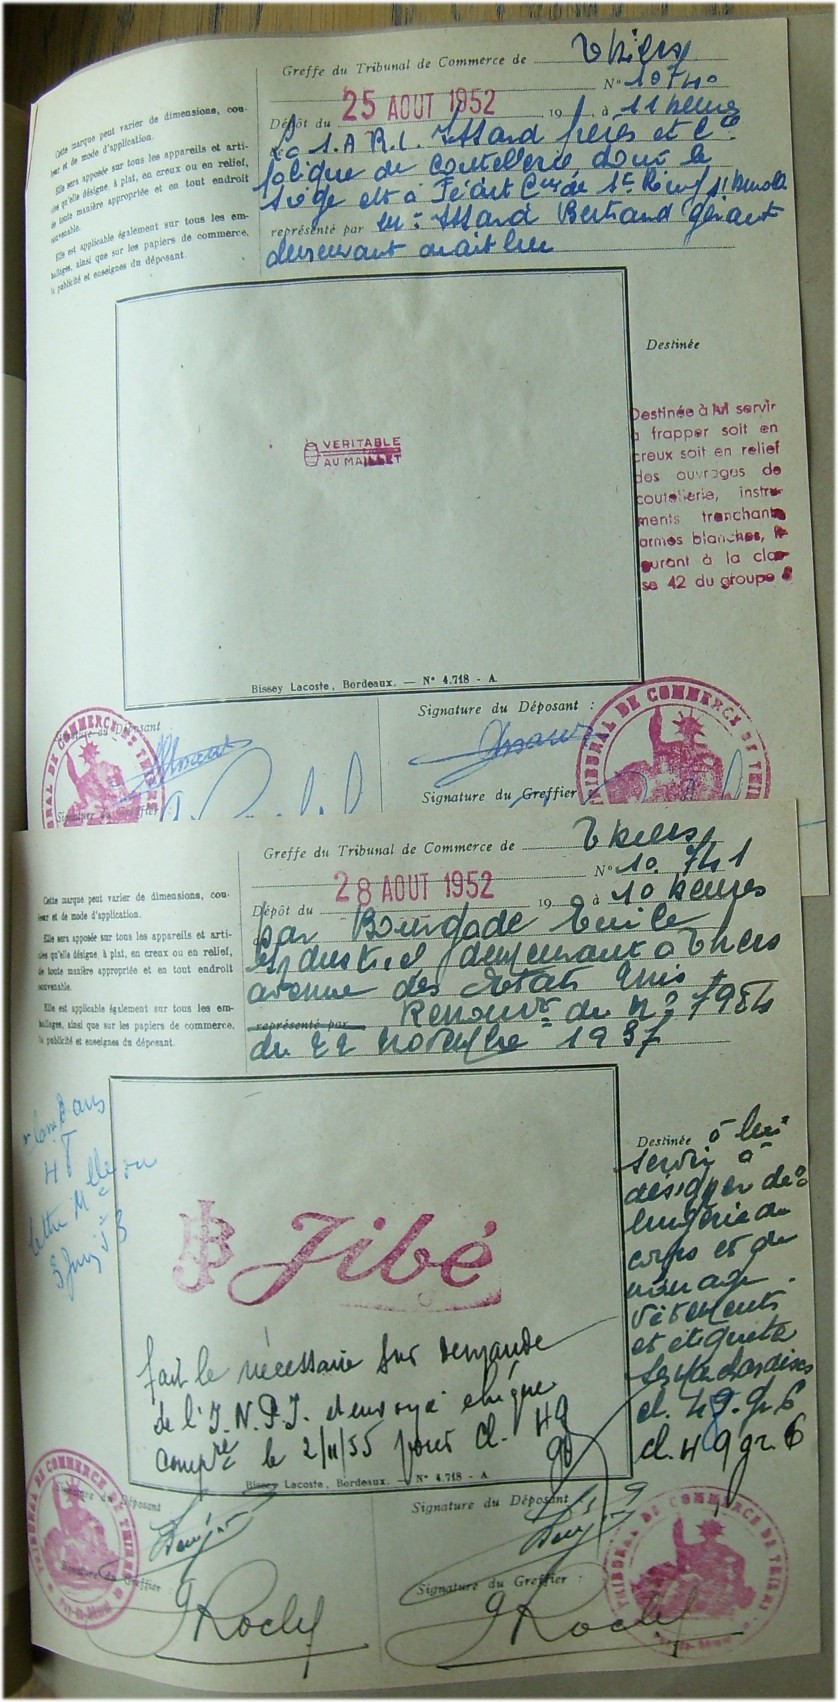 Greffe du Tribunal de Commerce de Thiers
N° 10740
Dépôt du 25 AOUT 1952 19 à 11 heures
Cette marque peut varier de dimensions, cou-
leur et de mode d'application.
Elle sera apposée sur tous les appareils et arti-
cles qu'elle désigne, à plat, en creux ou en relief,
de toute manière appropriée et en tout endroit
convenable.
Elle est applicable également sur tous les em-
ballages, ainsi que sur les papiers de commerce,
la publicité et enseignes du déposant.
la S.A.R.L. Issard frères et Cie
de coutellerie dont le
siège est à
représenté par Mr Issard Bertrand gérant
demeurant audit lieu
VERITABLE
AU MAILLET
Destinée
Destinée à lui servir
à frapper soit en
creux soit en relief
des ouvrages de
coutellerie, instru-
ments tranchants
armes blanches, fi-
gurant à la clas-
se 42 du groupe
Bissey Lacoste, Bordeaux. — N° 4.718 - A.
Signature du Déposant
Signature du Déposant :
Signature du Greffier :
Signature du Greffier
TRIBUNAL DE COMMERCE DE THIERS
TRIBUNAL DE COMMERCE DE THIERS
Greffe du Tribunal de Commerce de Thiers
N° 10.741
Dépôt du 28 AOUT 1952 19 à 10 heures
Cette marque peut varier de dimensions, cou-
leur et de mode d'application.
Elle sera apposée sur tous les appareils et arti-
cles qu'elle désigne, à plat, en creux ou en relief,
de toute manière appropriée et en tout endroit
convenable.
Elle est applicable également sur tous les em-
ballages, ainsi que sur les papiers de commerce,
la publicité et enseignes du déposant.
par Bourgade Emile
industriel demeurant à Thiers
avenue des Etats Unis
représenté par Renouvt du n° 7984
du 22 novembre 1937
JB Jibé
Destinée à lui
servir à
désigner de la
lingerie de
corps et de
ménage
vêtements
et étiquette
cl. 49. gr. 6
cl. 49 gr. 6
fait le nécessaire sur demande
de l'I.N.P.I. et envoyé chèque
le 2/11/55 pour cl. 49
Bissey Lacoste, Bordeaux. — N° 4.718 - A.
Signature du Déposant
Signature du Déposant
Signature du Greffier :
Signature du Greffier :
TRIBUNAL DE COMMERCE DE THIERS
Puy-de-Dôme
TRIBUNAL DE COMMERCE DE THIERS
Puy-de-Dôme